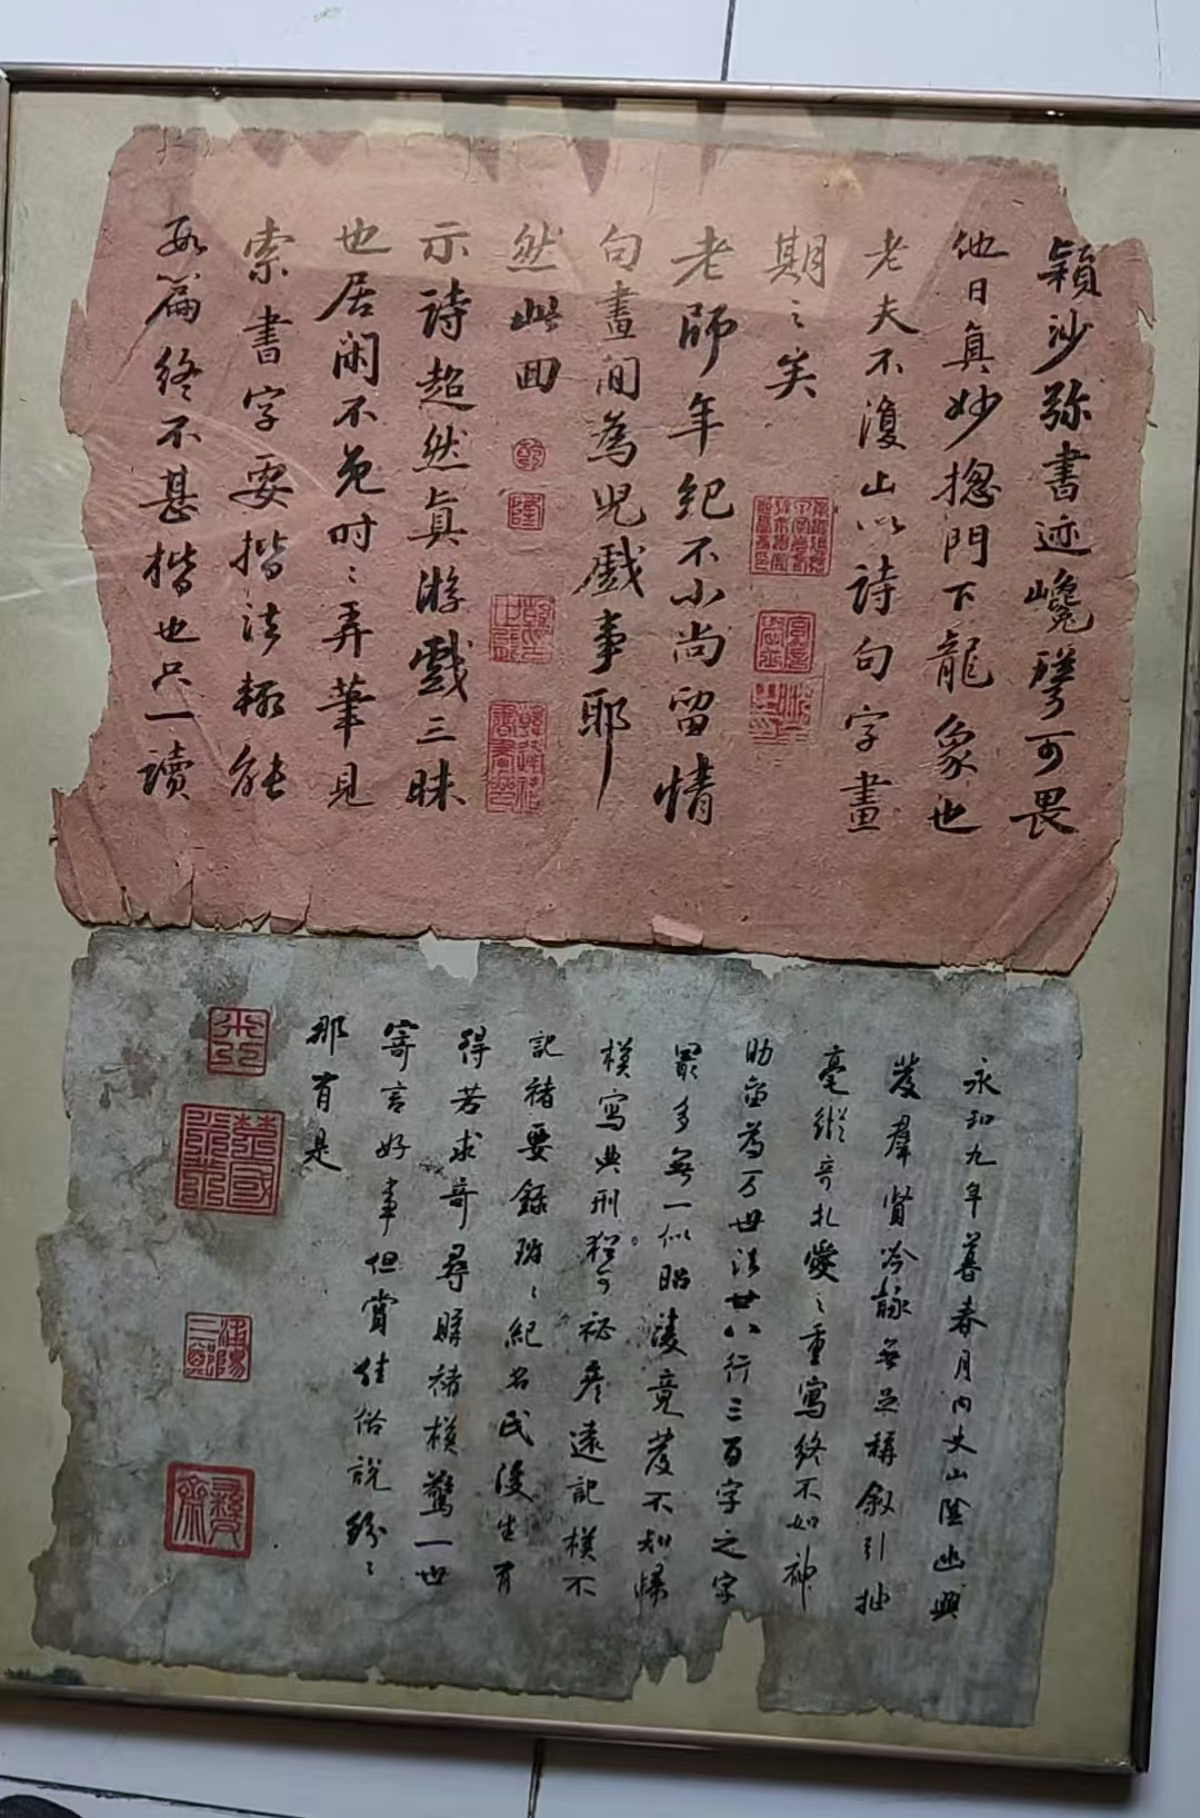 颖沙弥書迹巉聳可畏
他日真妙揔門下龍象也
老夫不復止以詩句字畫
期之矣
老師年紀不小尚留情
句畫間為児戲事耶
然此回
示詩超然真游戲三昧
也居閑不免時〻弄筆見
索書字要楷法輙能
数篇終不甚楷也只一讀
永和九年暮春月内史山陰幽興
發群賢吟詠無足稱叙引抽
毫縱奇札愛之重寫終不如神
助留為万世法廿八行三百字之字
最多無一似昭陵竟發不知歸
模寫典刑猶可秘彦遠記模不
記褚要録班〻紀名氏後生有
得若求奇尋購褚模驚一世
寄言好事但賞佳俗説紛〻
那有是
楚國
米芾